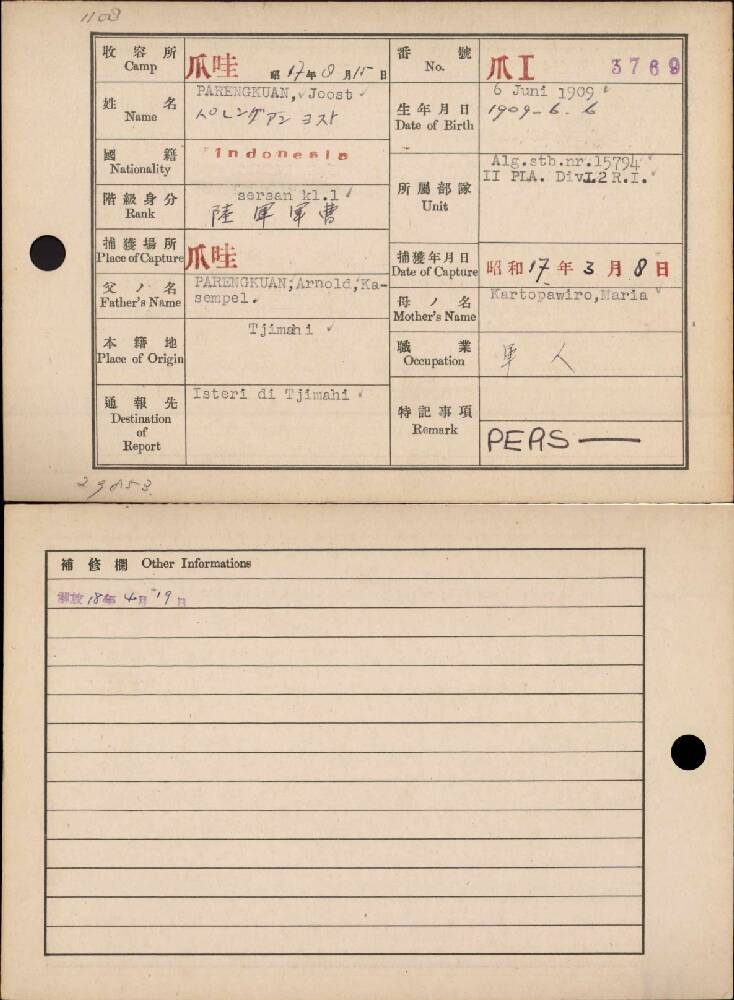 1108
收容所
Camp
爪哇
昭17年8月15日
番號
No.
爪I 3769
姓名
Name
PARENGKUAN, Joost
パレングアン ヨスト
生年月日
Date of Birth
6 Juni 1909
1909-6.6
國籍
Nationality
Indonesia
所屬部隊
Unit
Alg.stb.nr.15794
II PLA. Div.I.2 R.I.
階級身分
Rank
sersan kl.1
陸軍軍曹
捕獲場所
Place of Capture
爪哇
捕獲年月日
Date of Capture
昭和17年3月8日
父ノ名
Father's Name
PARENGKUAN;Arnold,Ka-
sempel.
母ノ名
Mother's Name
Kartopawiro,Maria
本籍地
Place of Origin
Tjimahi
職業
Occupation
軍人
通報先
Destination
of
Report
Isteri di Tjimahi
特記事項
Remark
PERS —
補修欄 Other Informations
解放18年4月19日